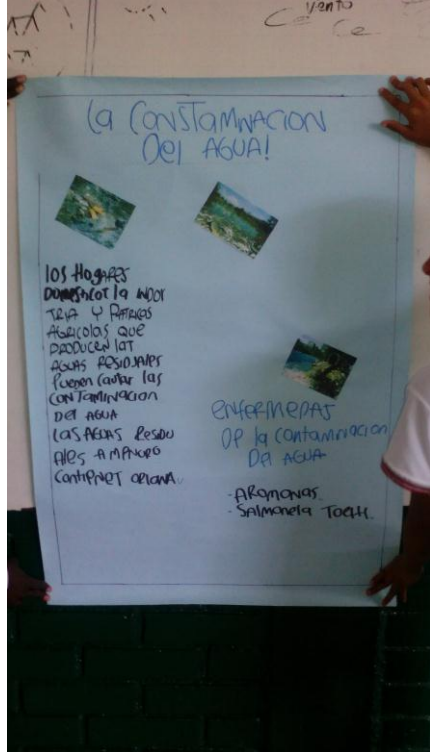 vento
Ce
La CONSTAMNACION
Del AGUA!
los Hogares
DOMESticot la INDOT
TRIA Y PATRICAS
AGRICOLAS QUE
PRODUCEN lAT
AGUAS RESIDUALES
Pueden Cautar las
CONTAMINACION
Del AGUA
LAS AGUAS RESIDU
Ales AMENURO
CONTIENET
enfermedas
De la Contaminacion
Del AGUA
- AROMONAS.
- SALMONELA